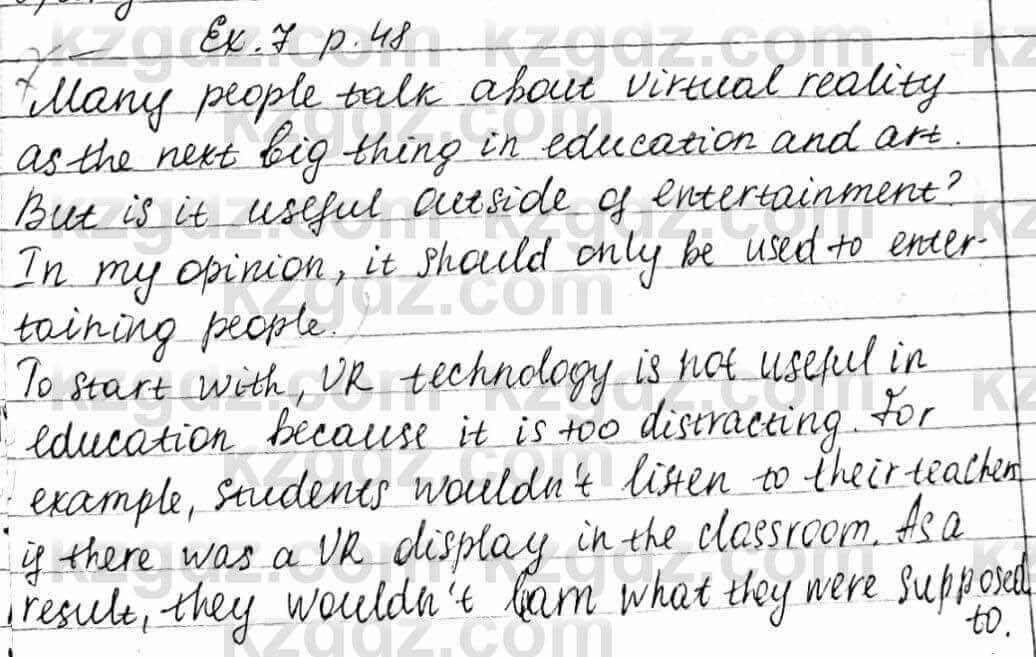 Ex. 7 p. 48
Many people talk about virtual reality
as the next big thing in education and art.
But is it useful outside of entertainment?
In my opinion, it should only be used to enter-
taining people.
To start with, VR technology is not useful in
education because it is too distracting. For
example, students wouldn't listen to their teacher
if there was a VR display in the classroom. As a
result, they wouldn't learn what they were supposed
to.
kzgdz.com